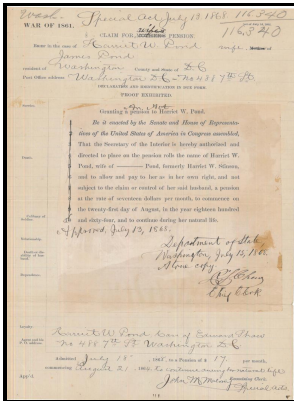 Wash. Special Act July 13, 1868 116,340
WAR OF 1861.
116,340
CLAIM FOR PENSION.
Harriet W. Pond
James Pond
Washington County and State of D.C
Post Office address Washington D.C. No 438 7th St
DECLARATION AND IDENTIFICATION IN DUE FORM.
PROOF EXHIBITED.
An Act
Granting a pension to Harriet W. Pond.
Be it enacted by the Senate and House of Representa-
tives of the United States of America in Congress assembled,
That the Secretary of the Interior is hereby authorized and
directed to place on the pension rolls the name of Harriet W.
Pond, wife of Pond, formerly Harriet W.
and to allow and pay to her in her own right, and not
subject to the claim or control of her said husband, a pension
at the rate of seventeen dollars per month, to commence on
the twenty-first day of August, in the year eighteen hundred
and sixty-four, and to continue during her natural life.
Approved, July 13, 1868.
Department of State,
Washington, July 1868
A true copy
Chief Clerk
Loyalty.
Harriet W. Pond Care of Edward Shaw
No 438 7th St Washington D.C.
Admitted July 18 1868 to a Pension of $17. per month,
commencing August 21 1864, to continue during her natural life
Examining Clerk.
Special Acts